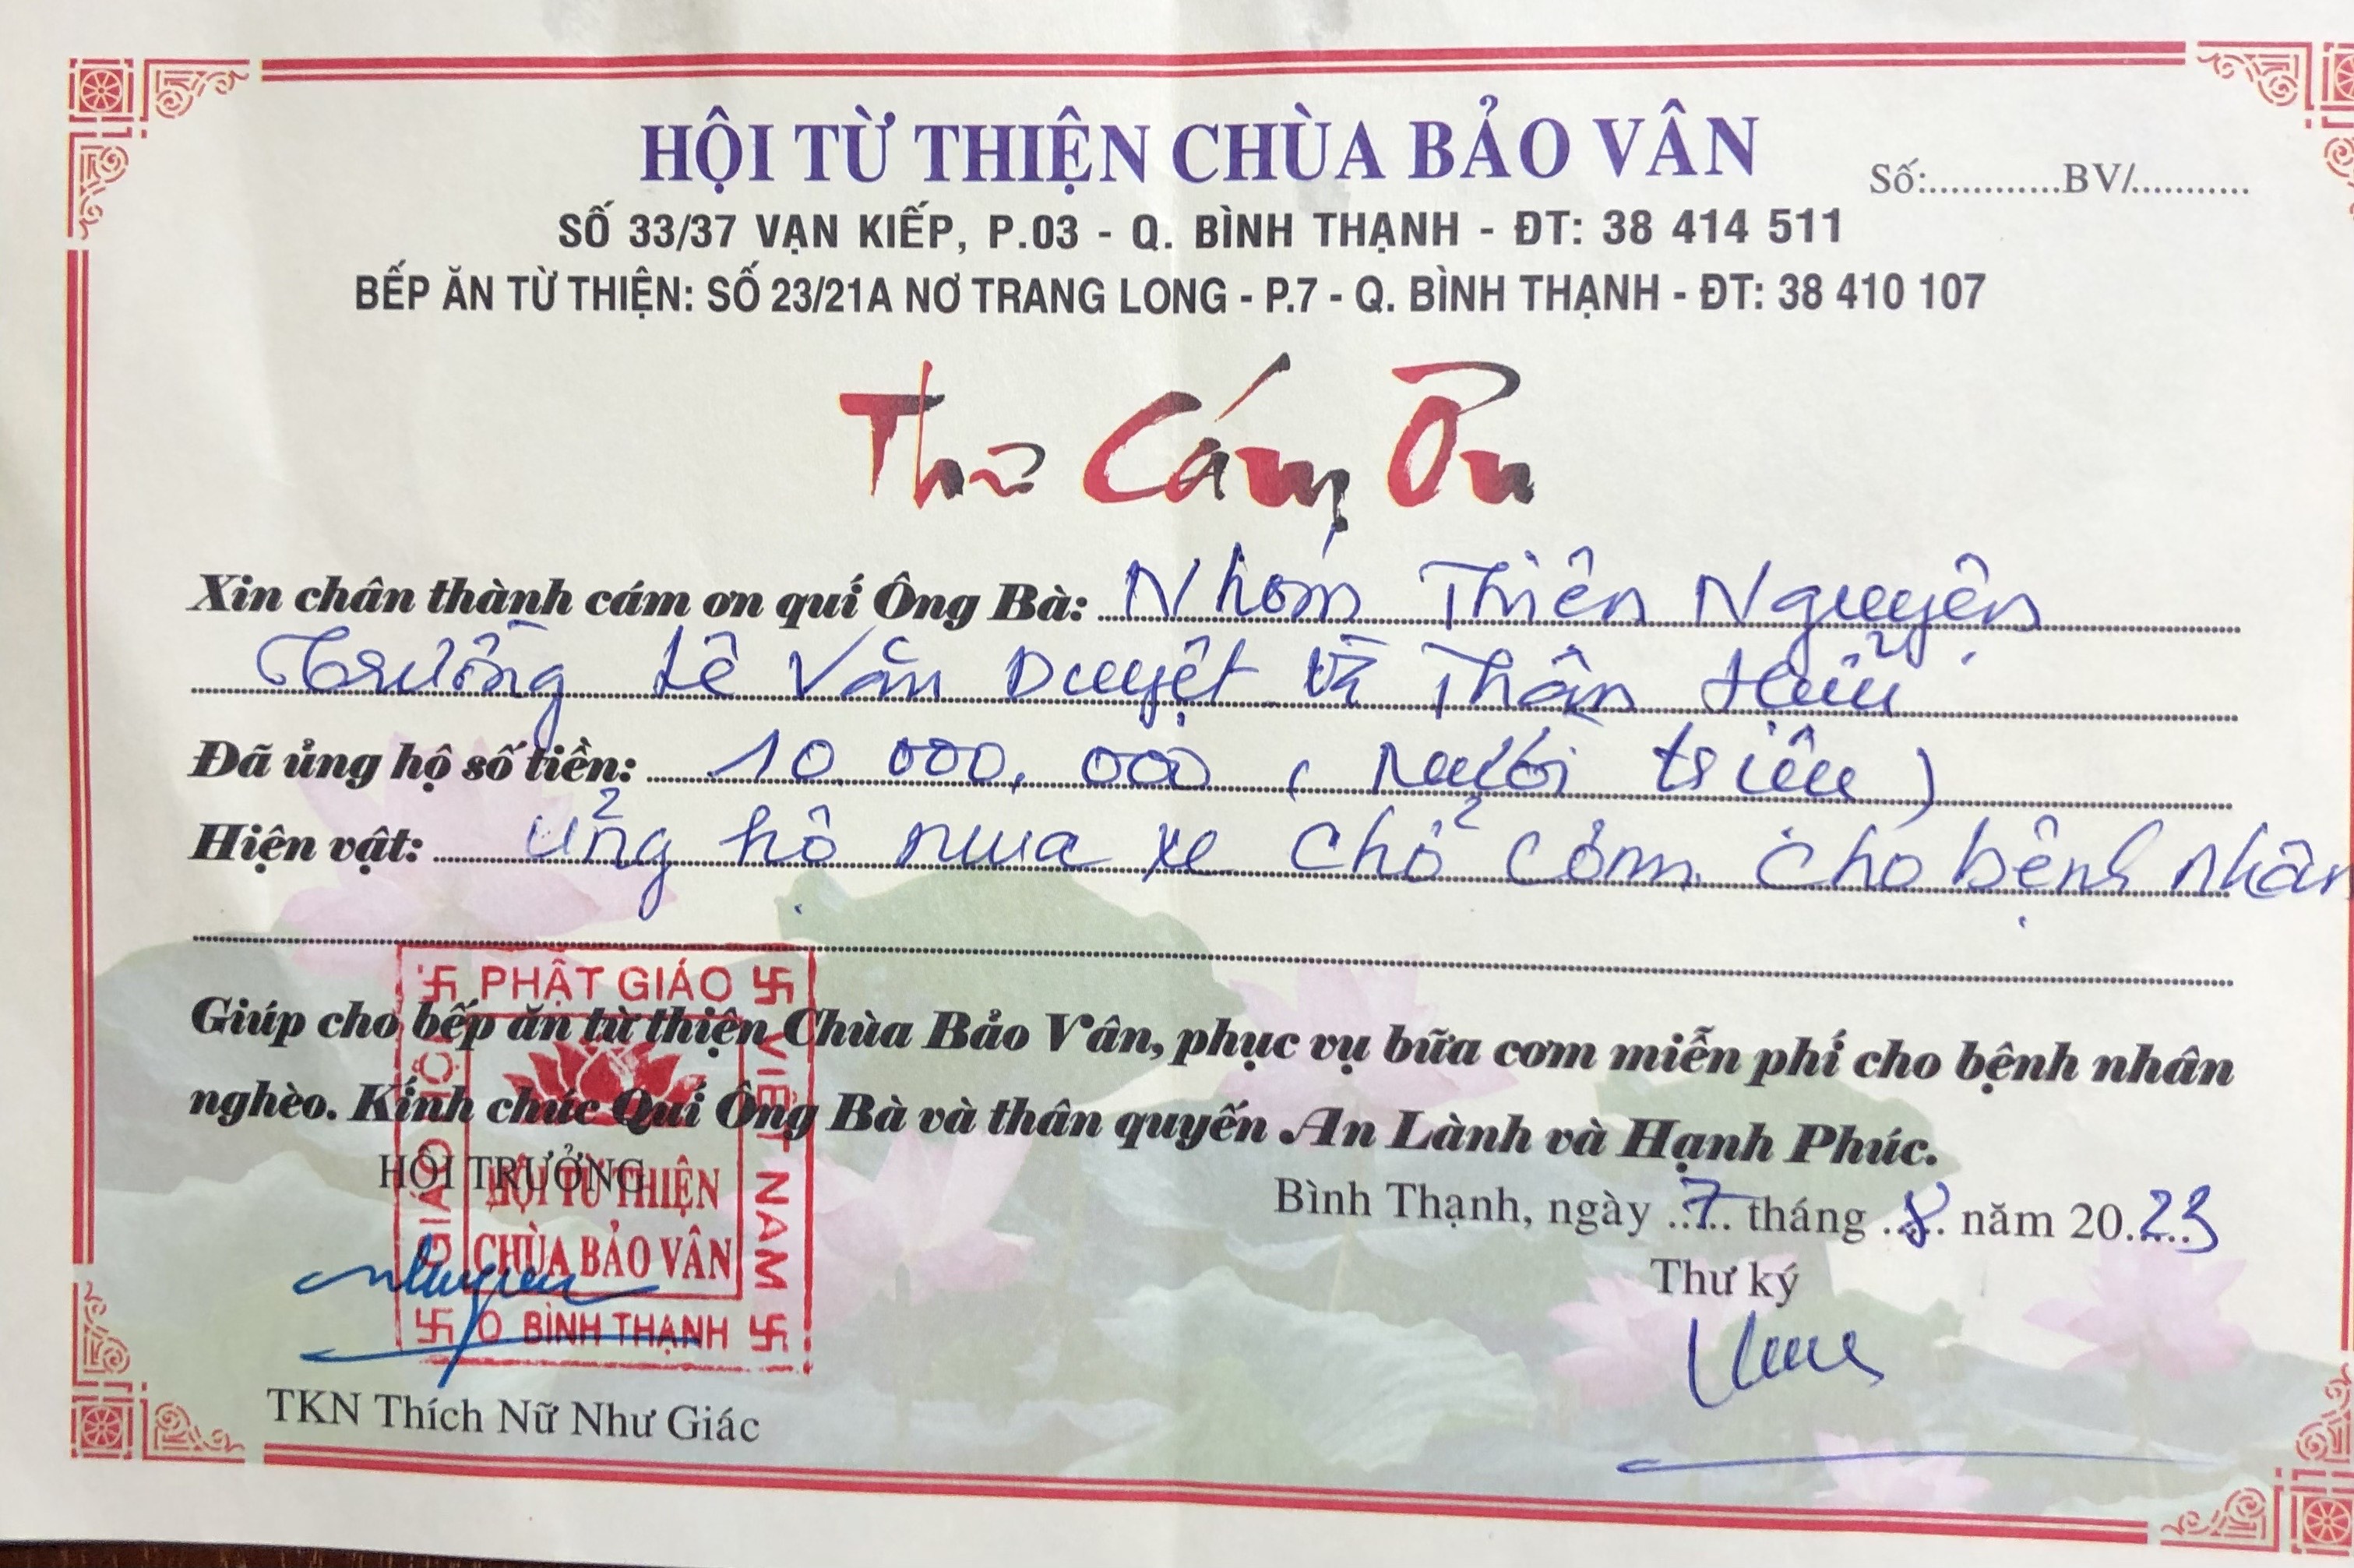 HỘI TỪ THIỆN CHÙA BẢO VÂN
Số:............BV/...........
SỐ 33/37 VẠN KIẾP, P.03 - Q. BÌNH THẠNH - ĐT: 38 414 511
BẾP ĂN TỪ THIỆN: SỐ 23/21A NƠ TRANG LONG - P.7 - Q. BÌNH THẠNH - ĐT: 38 410 107
Thư Cám Ơn
Xin chân thành cám ơn quí Ông Bà: Nhóm Thiện Nguyện
Trường Lê Văn Duyệt và Thân Hữu
Đã ủng hộ số tiền: 10.000.000 (mười triệu)
Hiện vật: ủng hộ mua xe chở cơm cho bệnh nhân
Giúp cho bếp ăn từ thiện Chùa Bảo Vân, phục vụ bữa cơm miễn phí cho bệnh nhân
nghèo. Kính chúc Quí Ông Bà và thân quyến An Lành và Hạnh Phúc.
Bình Thạnh, ngày 7 tháng 8 năm 2023
HỘI TRƯỞNG
Thư ký
PHẬT GIÁO
VIỆT NAM
GIÁO HỘI
HỘI TỪ THIỆN
CHÙA BẢO VÂN
Q BÌNH THẠNH
TKN Thích Nữ Như Giác